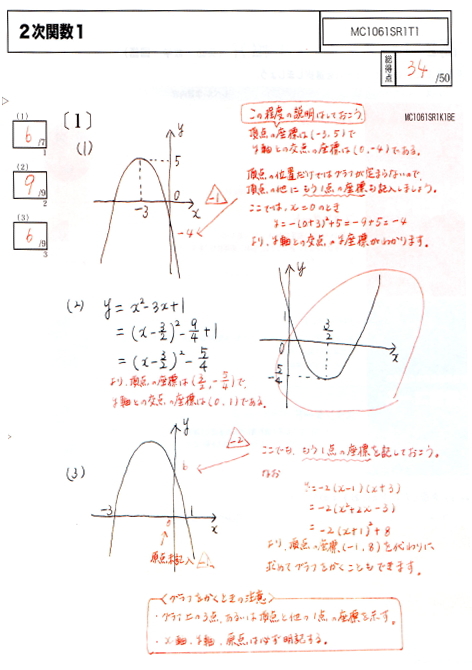 2次関数1
MC1061SR1T1
総得点 34 /50
MC1061SR1K1BE
(1) 6 /7 1
(2) 9 /9 2
(3) 6 /9 3
〔1〕
(1)
y 5 0 -3 x -4
-1
この程度の説明はしておこう
頂点の座標は(-3,5)で
y軸との交点の座標は(0,-4)である。
頂点の位置だけではグラフが定まらないので、
頂点の他にもう1点の座標も記入しましょう。
ここでは、x=0のとき
y=-(0+3)²+5=-9+5=-4
より、y軸との交点のy座標がわかります。
(2) y=x²-3x+1
=(x-3/2)²-9/4+1
=(x-3/2)²-5/4
より、頂点の座標は(3/2,-5/4)で、
y軸との交点の座標は(0,1)である。
y 1 0 3/2 x -5/4
(3)
y 6 -3 0 1 x
-2
原点未記入
ここでも、もう1点の座標を記しておこう。
なお
y=-2(x-1)(x+3)
=-2(x²+2x-3)
=-2(x+1)²+8
より、頂点の座標(-1,8)を代わりに
求めてグラフをかくこともできます。
<グラフをかくときの注意>
・グラフ上の3点、あるいは頂点と他の1点の座標を示す。
・x軸、y軸、原点は必ず明記する。